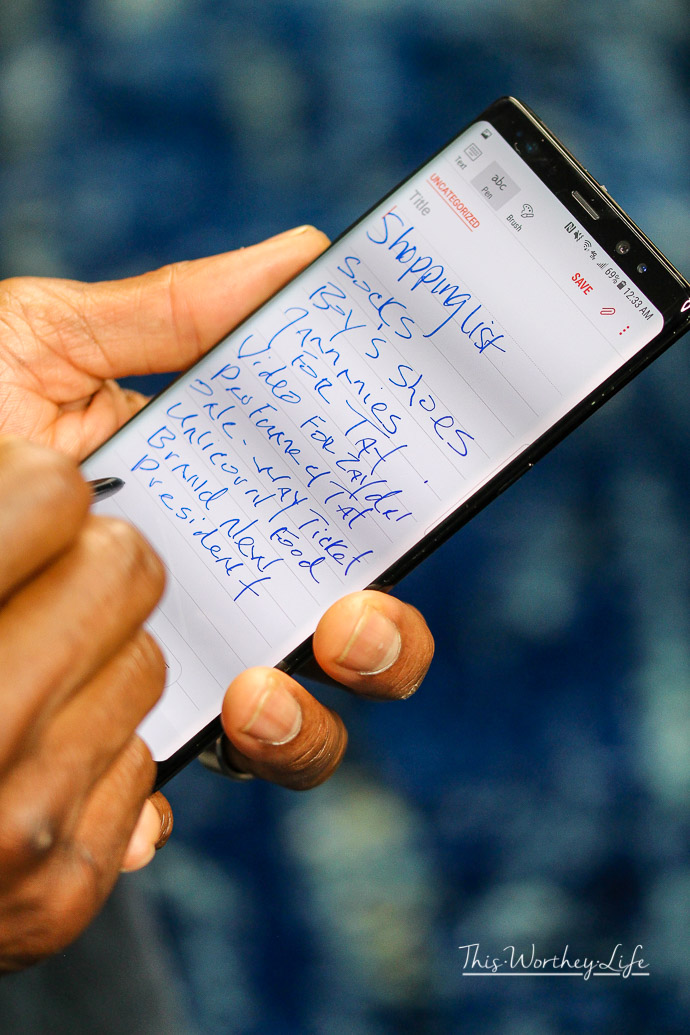 69% 12:33 AM
abc
Text Pen Brush SAVE
UNCATEGORIZED
Title
Shopping list
Socks
Boy's Shoes
Jammies
For TAY
Video For
TAT
way Ticket
Unicorn Food
Brand New
President
This·Worthey·Life